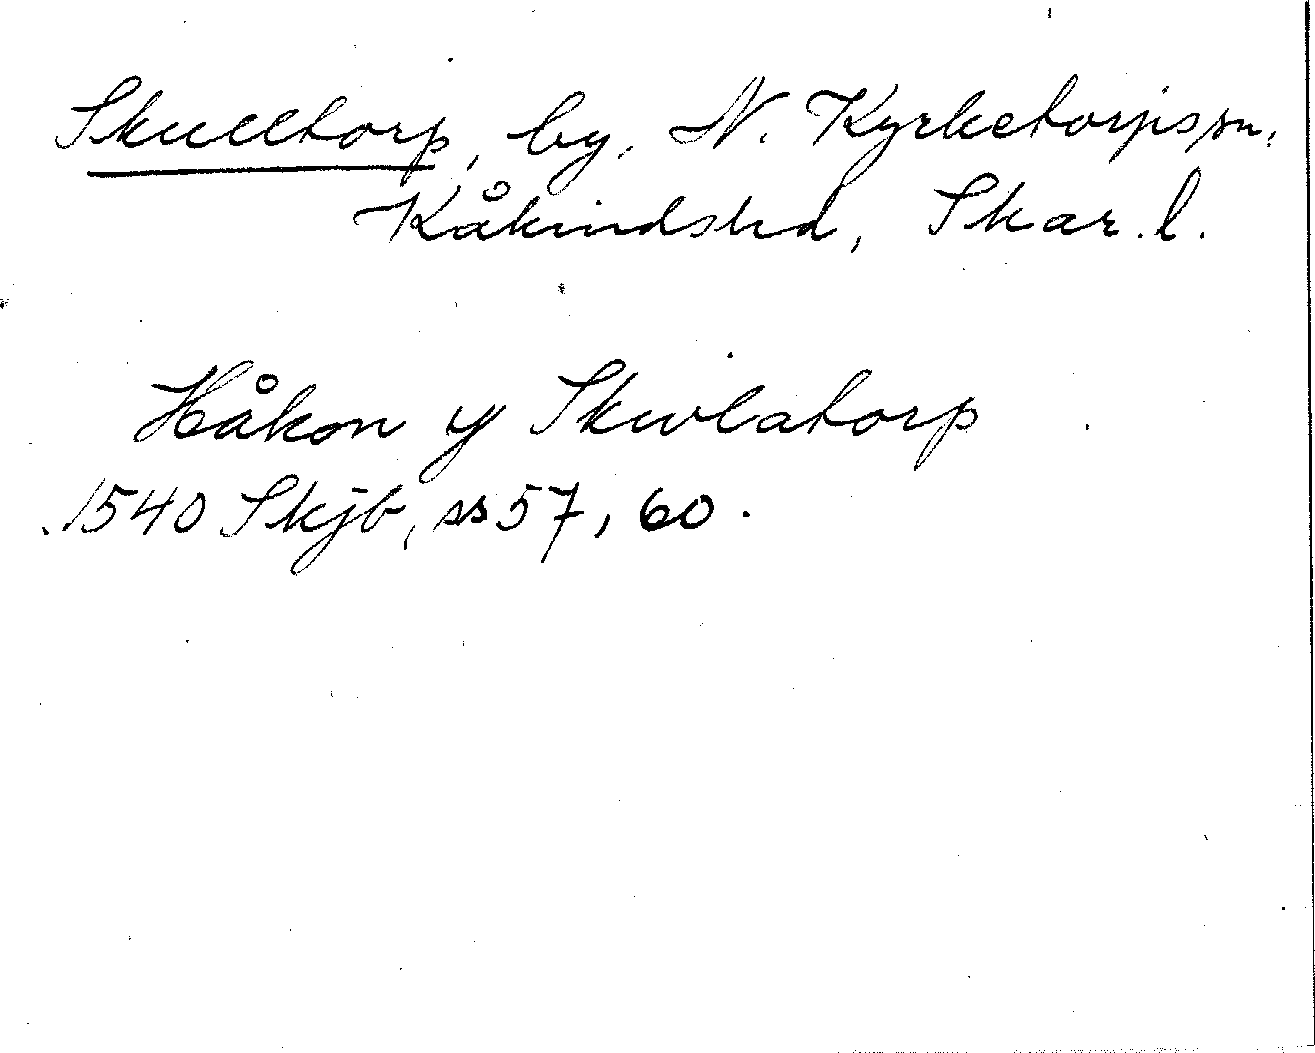 Skulltorp, by, N. Kyrketorps sn,
Kåkindshd, Skar. l.
Håkon y Skwlatorp
1540 Skjb, ss 57, 60.